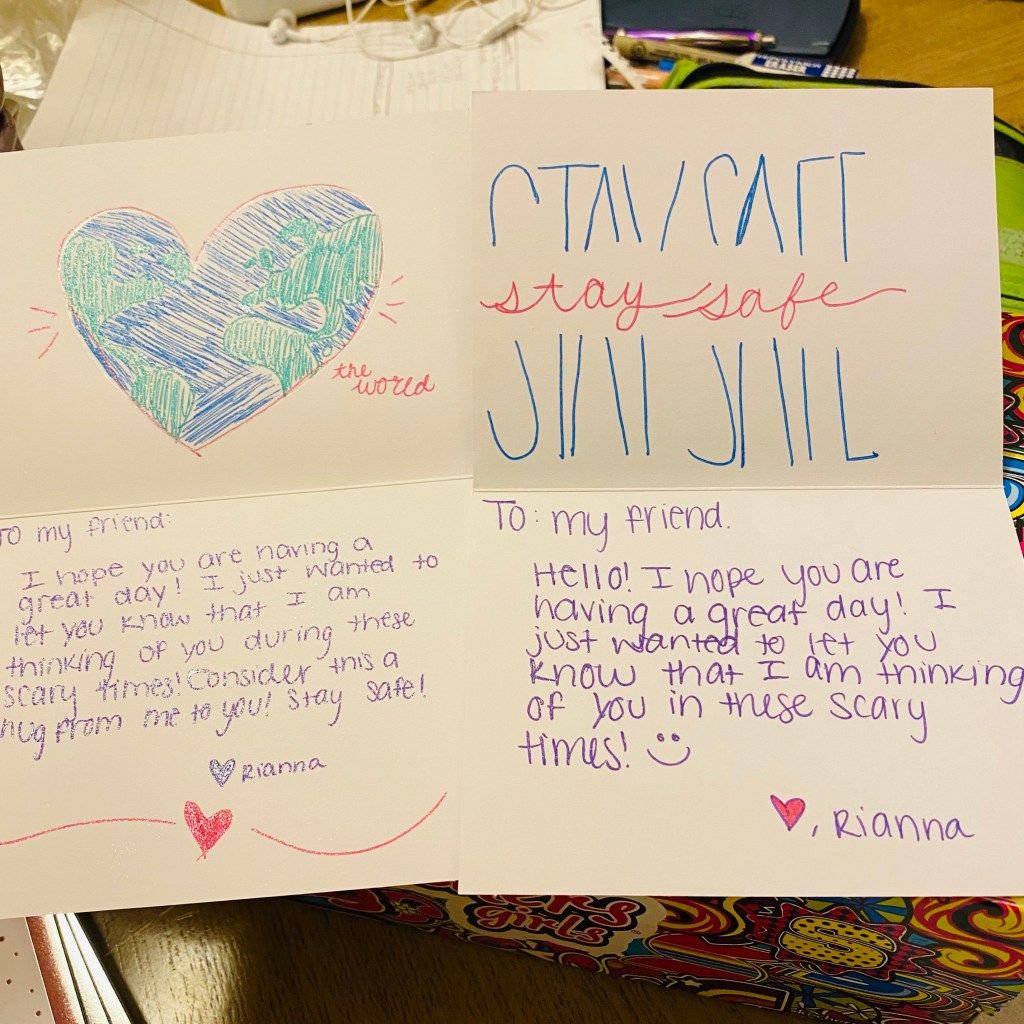 the
world
To my friend:
I hope you are having a
great day! I just wanted to
let you know that I am
thinking of you during these
scary times! Consider this a
hug from me to you! Stay safe!
Rianna
STAY SAFE
stay safe
To: my friend.
Hello! I hope you are
having a great day! I
just wanted to let you
know that I am thinking
of you in these scary
times!
, Rianna
ERASER
Girls